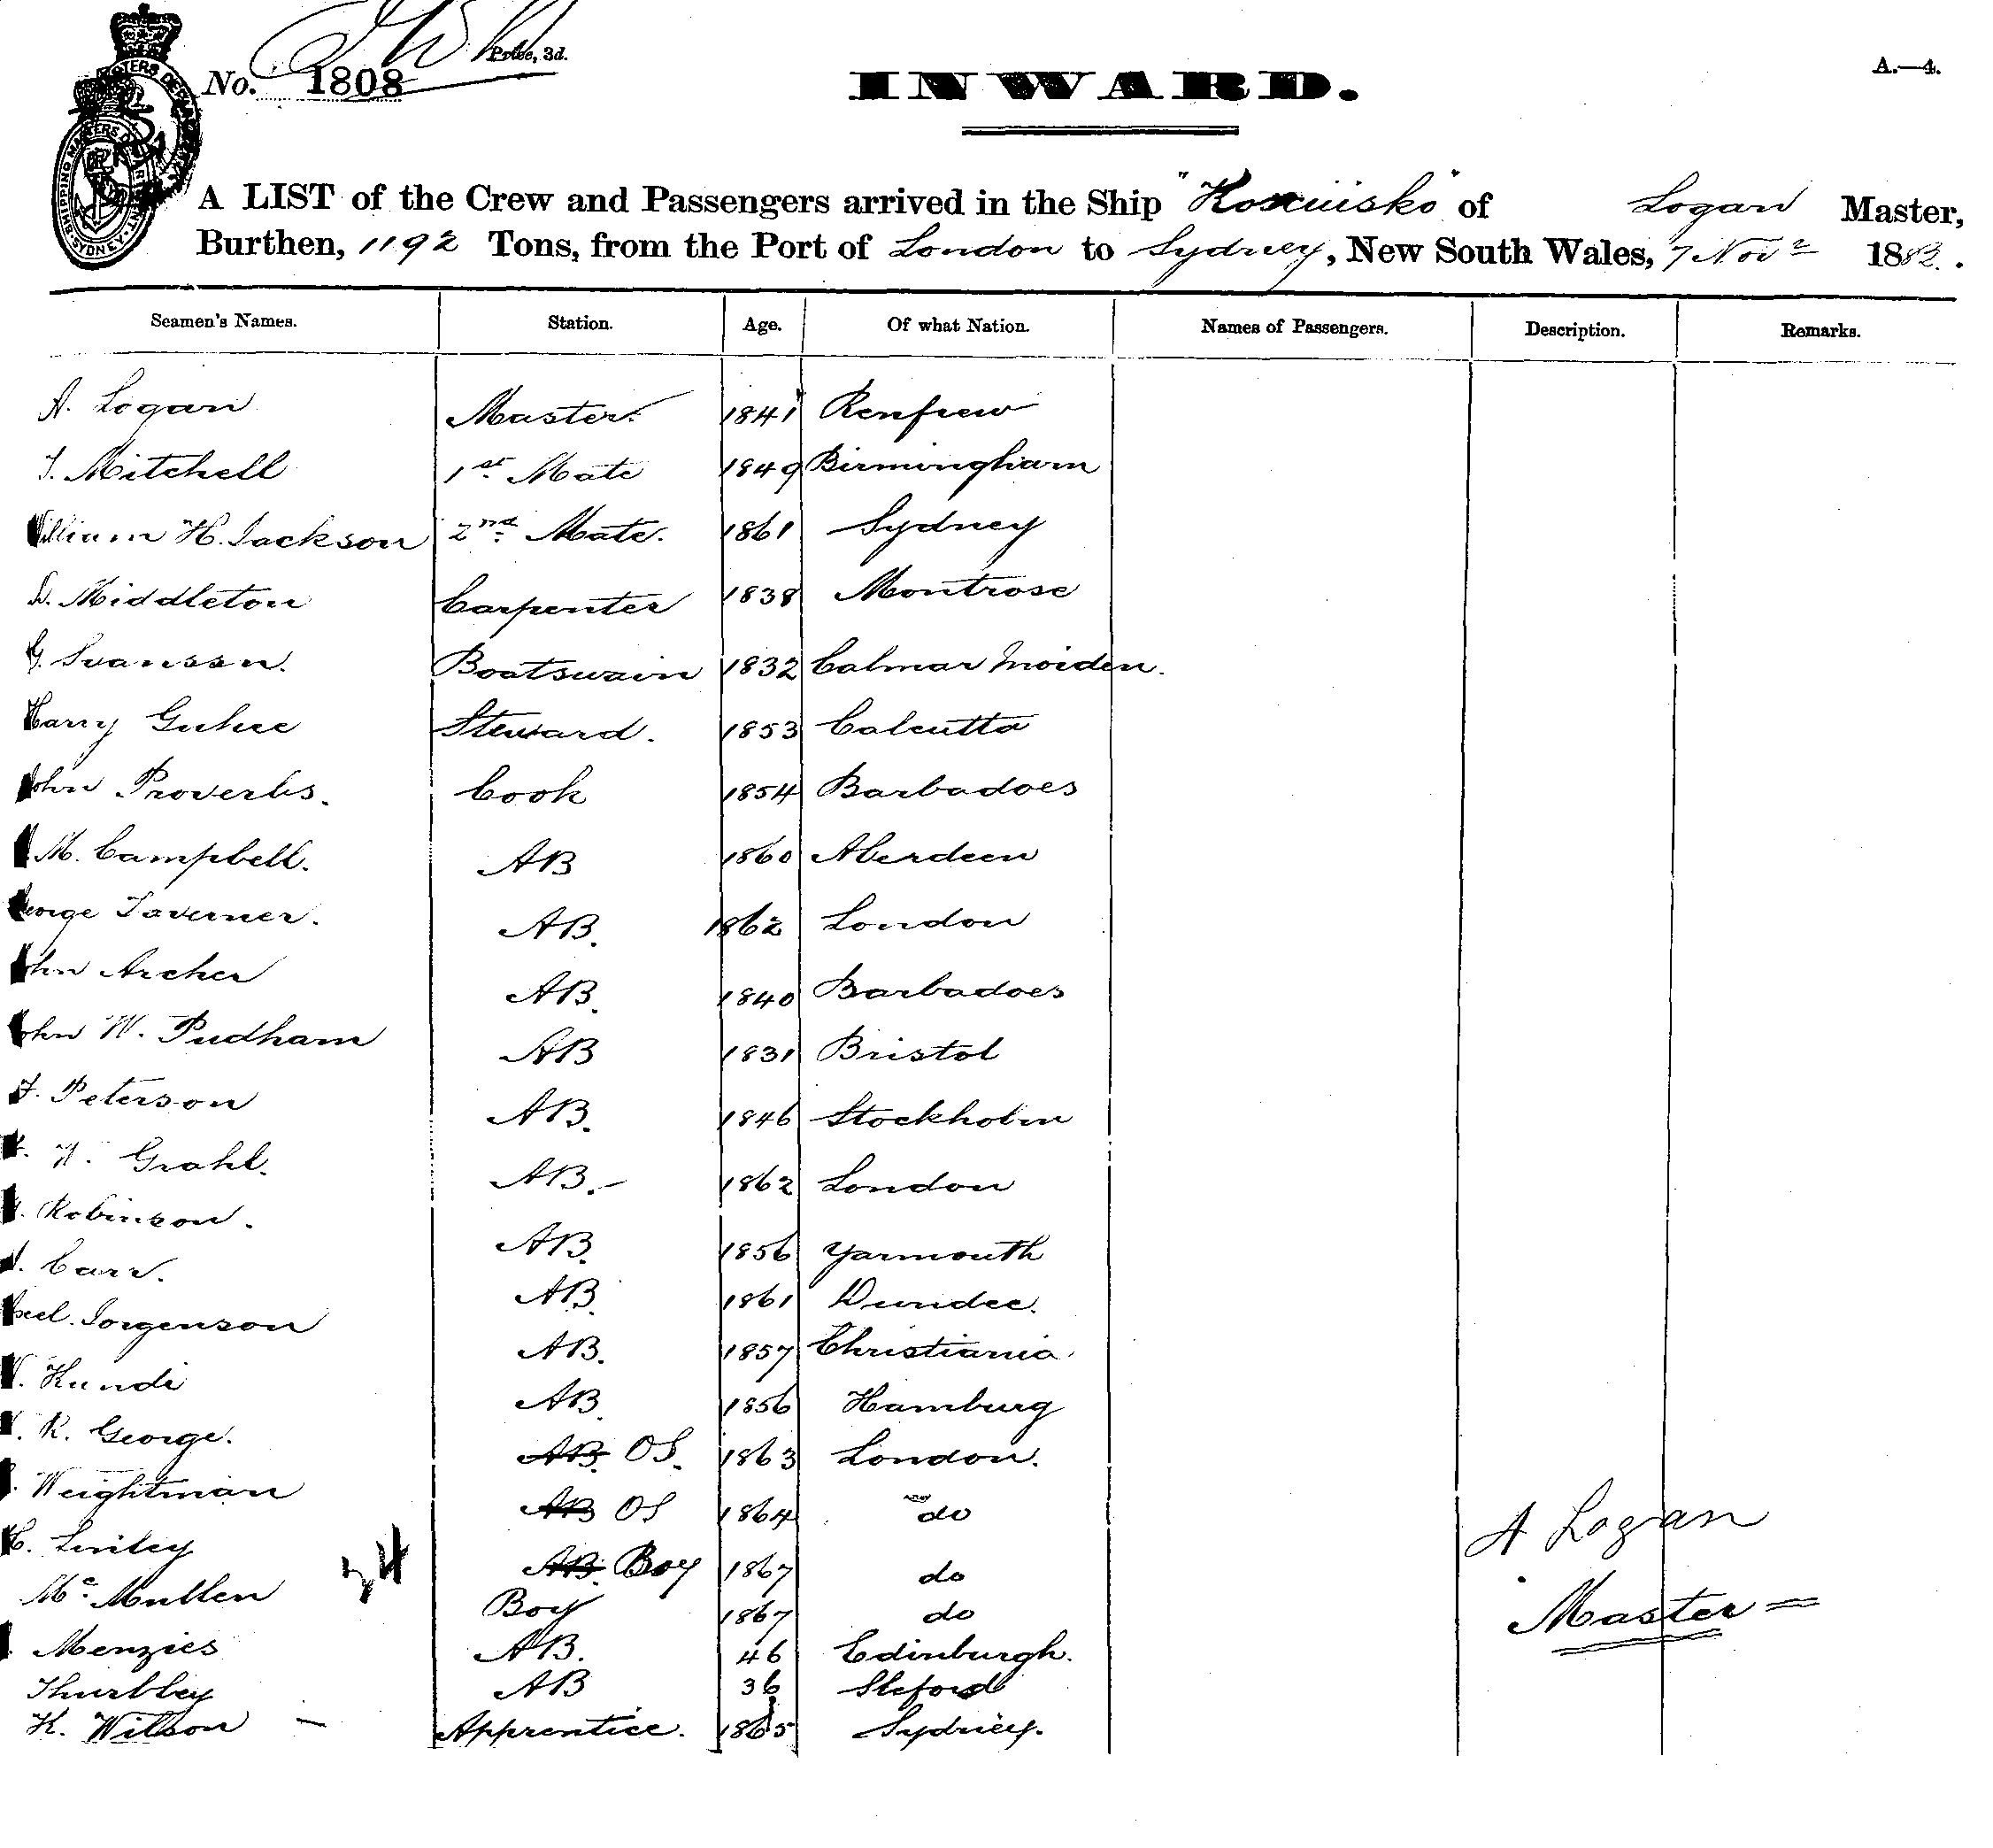 No. 1808 Price, 3d.
A.—4.
INWARD.
A LIST of the Crew and Passengers arrived in the Ship "Kosciusko" of Logan Master,
Burthen, 1192 Tons, from the Port of London to Sydney, New South Wales, 7 Novr 1882.
Seamen's Names. Station. Age. Of what Nation. Names of Passengers. Description. Remarks.
A. Logan Master. 1841 Renfrew
Mitchell 1st Mate 1849 Birmingham
William H. Jackson 2nd Mate. 1861 Sydney
D. Middleton Carpenter 1838 Montrose
G. Svanssn. Boatswain 1832 Calmar
Harry Boatswain Steward. 1853 Calcutta
John Proverbs. Cook 1854 Barbadoes
M. Campbell. AB 1860 Aberdeen
George Taverner. AB. 1862 London
John Archer AB. 1840 Barbadoes
John W. Pudham AB 1831 Bristol
Peterson AB. 1846 Stockholm
Grahl. AB. 1862 London
Robinson. AB. 1856 Yarmouth
Carr. AB. 1861 Dundee.
Jorgenson AB. 1857 Christiania
Kundi AB. 1856 Hamburg
R. George. AB. OS. 1863 London.
Weightman AB OS 1864 do
Linley AB. Boy 1867 do
McMullen Boy 1867 do
Menzies AB. 46 Edinburgh.
Thurbley AB 36 Sleford
K. Wilson Apprentice. 1865 Sydney.
24
A Logan
Master